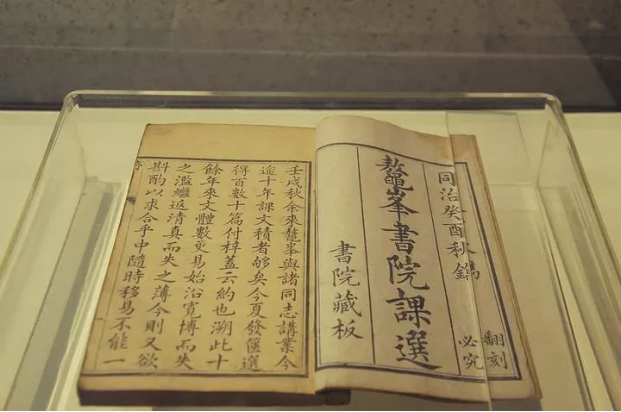 同治癸酉秋鐫
翻刻必究
鰲峯書院課選
書院藏板
壬戌秋余來鰲峯與諸同志講業今
逾十年課文積者夥矣今夏發篋選
得百數十篇付梓蓋云約也溯此十
餘年來文體數更易始沿寬博而失
之濫繼返清真而失之薄今則又欲
斟酌以求合乎中隨時移易不能一